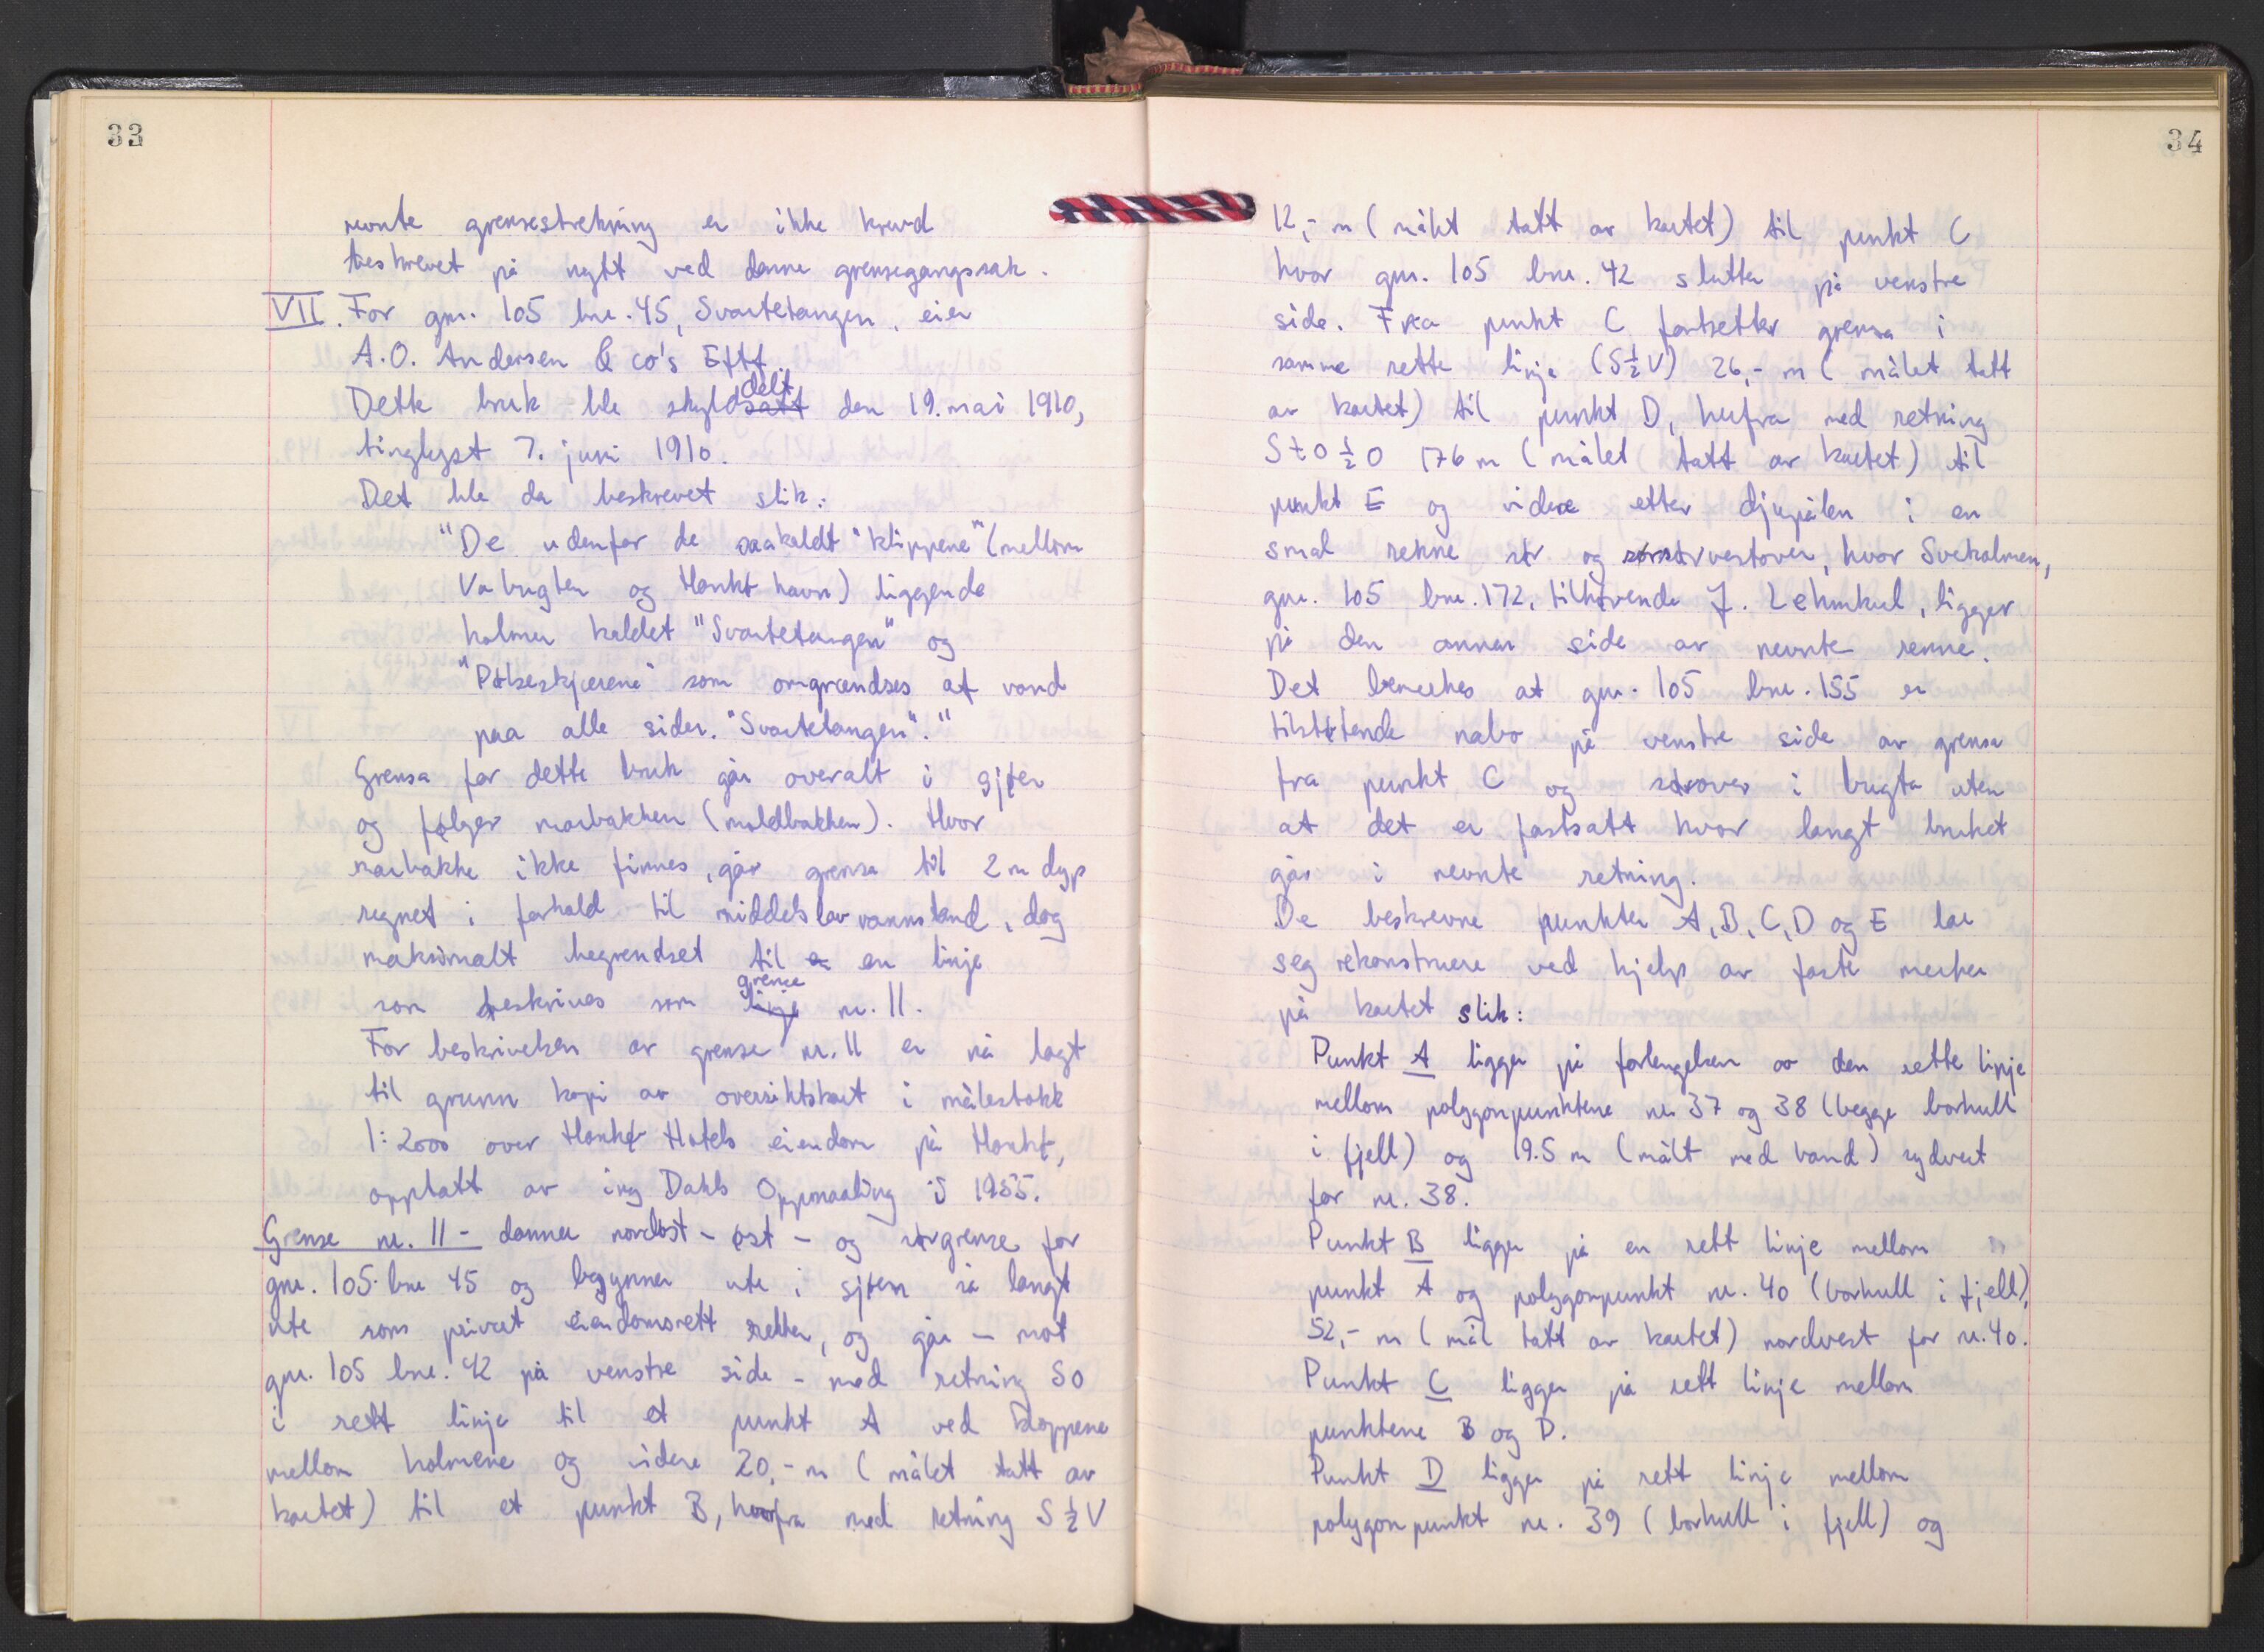 33
nevnte grensestrekning er ikke krevd
beskrevet på nytt ved denne grensegangssak.
VII. For gnr. 105 bnr. 45, Svartetangen, eier
A.O. Andersen & co's Eftf
delt
Dette bruk ble skyldsatt den 19. mai 1910,
tinglyst 7. juni 1910.
Det ble da beskrevet slik:
"De udenfor de saakaldt "klippene" (mellom
Vabugten og Hankø havn) liggende
holmer kaldet "Svartetangen" og
"Pølseskjærene" som omgrændses af vand
paa alle sider. "Svartetangen"."
Grensa for dette bruk går overalt i sjøen
og følger marbakken (moldbakken). Hvor
marbakke ikke finnes, går grensa til 2 m dyp
regnet i forhold til middels lav vannstand, dog
maksimalt begrendset til en en linje
grense
som beskrives som linje nr. 11.
For beskrivelsen av grense nr. 11 er nå lagt
til grunn kopi av oversiktskart i målestokk
1:2000 over Hankø Hotels eiendom på Hankø,
opptatt av ing Dahls Oppmaaling i 1955.
Grense nr. 11 - danner nordøst - øst - og sørgrense for
gnr. 105 bnr 45 og begynner ute i sjøen så langt
ute som privat eiendomsrett rekker, og går - mot
gnr. 105 bnr. 42 på venstre side - med retning SO
i rett linje til et punkt A ved kloppene
mellom holmene og videre 20,- m (målet tatt av
kartet) til et punkt B, hvorfra med retning S ½ V
34
12,- m (målet tatt av kartet) til punkt C
hvor gnr. 105 bnr. 42 slutter på venstre
side. Fra punkt C fortsetter grensa i
samme rette linje (S½V) 26,- m (målet tatt
av kartet) til punkt D, herfra med retning
StO½O 176 m (målet tatt av kartet) til
punkt E og videre etter djupålen i en
smal renne sør og sørvestover, hvor Sveholmen,
gnr. 105 bnr. 172, tilhørende J. Lehmkul, ligger
på den annen side av nevnte renne.
Det bemerkes at gnr. 105 bnr. 155 er
tilstøtende nabo på venstre side av grensa
fra punkt C og sørover i bugta uten
at det er fastsatt hvor langt bruket
går i nevnte retning.
De beskrevne punkter A, B, C, D og E lar
seg rekonstruere ved hjelp av faste merker
på kartet slik:
Punkt A ligger på forlengelsen av den rette linje
mellom polygonpunktene nr 37 og 38 (begge borhull
i fjell) og 19.5 m (målt med band) sydvest
for nr. 38.
Punkt B ligger på en rett linje mellom
punkt A og polygonpunkt nr. 40 (borhull i fjell),
52,- m (mål tatt av kartet) nordvest for nr. 40.
Punkt C ligger på rett linje mellom
punktene B og D.
Punkt D ligger på rett linje mellom
polygonpunkt nr. 39 (borhull i fjell) og